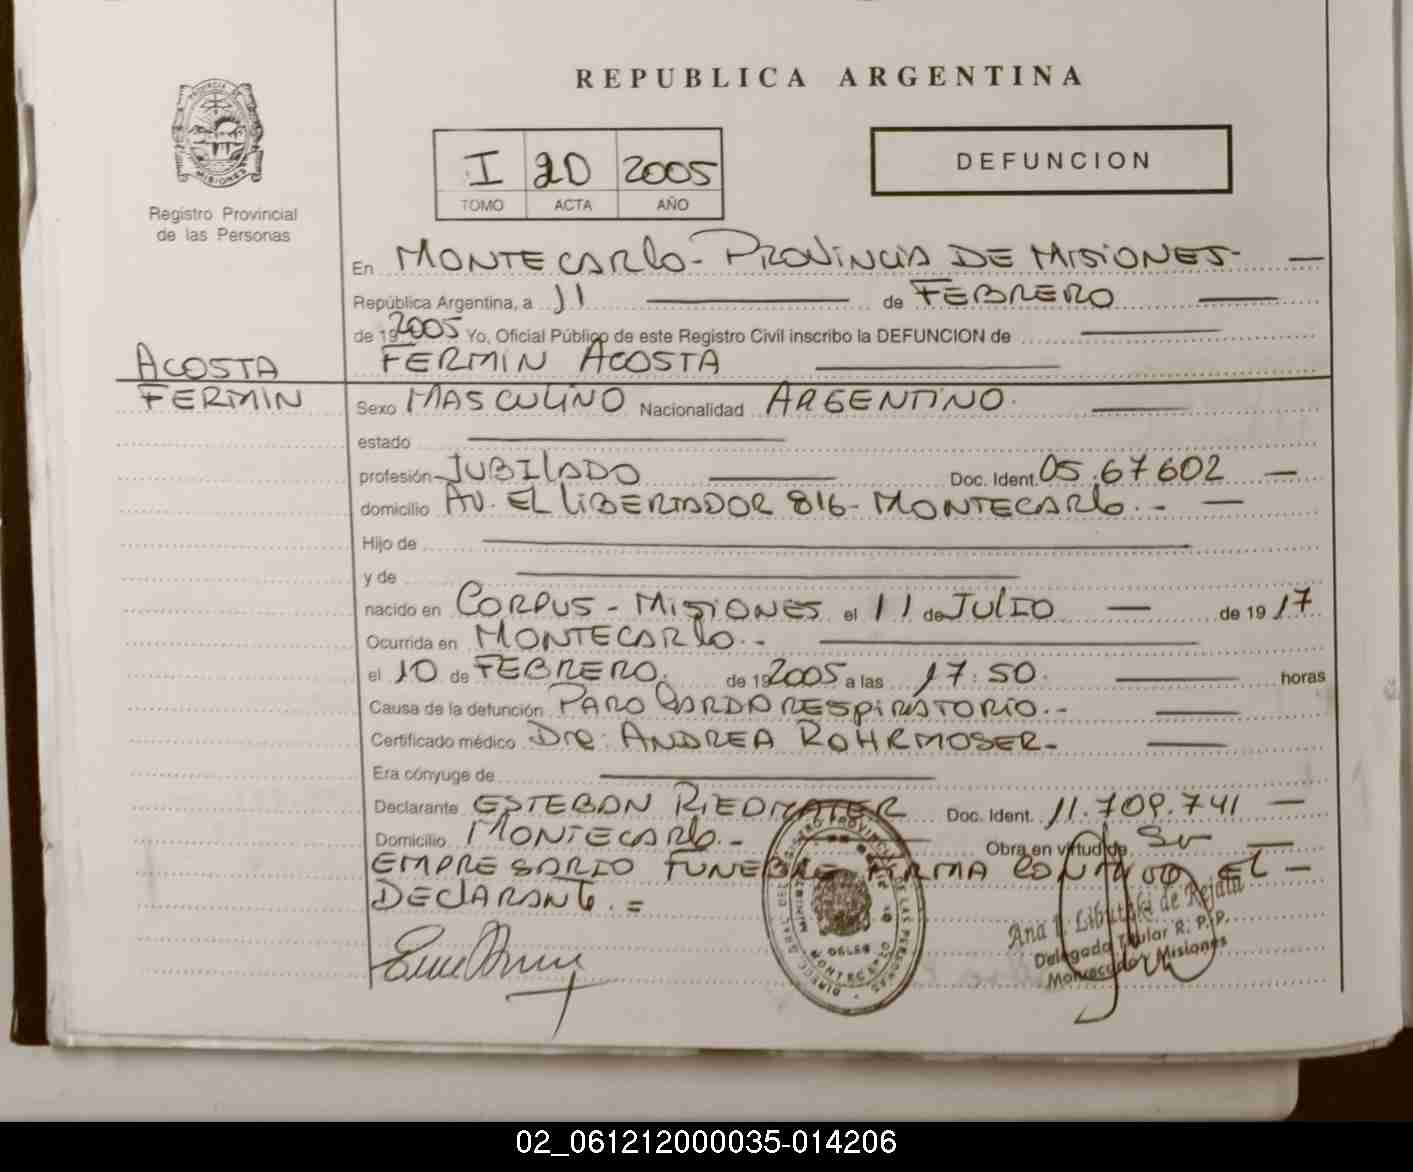 REPUBLICA ARGENTINA
PROVINCIA DE
MISIONES
Registro Provincial
de las Personas
I 20 2005
TOMO ACTA AÑO
DEFUNCION
En MONTECARLO - PROVINCIA DE MISIONES -
República Argentina, a 11 de FEBRERO
de 19 2005 Yo, Oficial Público de este Registro Civil inscribo la DEFUNCION de
ACOSTA
FERMIN
FERMIN ACOSTA
Sexo MASCULINO Nacionalidad ARGENTINO.
estado
profesión JUBILADO Doc. Ident. 05.67602
domicilio AV. EL LIBERTADOR 816 - MONTECARLO. -
Hijo de
y de
nacido en CORPUS - MISIONES el 11 de JULIO de 19 17
Ocurrida en MONTECARLO. -
el 10 de FEBRERO. de 19 2005 a las 17:50. horas
Causa de la defunción PARO CARDORESPIRATORIO. -
Certificado médico Dra. ANDREA ROHRMOSER -
Era cónyuge de
Declarante ESTEBAN RIEDMAIER Doc. Ident. 11.709.741
Domicilio MONTECARLO. - Obra en virtud de Su
EMPRESARIO FUNEBRE FIRMA CONMIGO EL -
DECLARANTE. =
Ana Libutzki de Rejala
Delegada Titular R. P. P.
Montecarlo Misiones
02_061212000035-014206